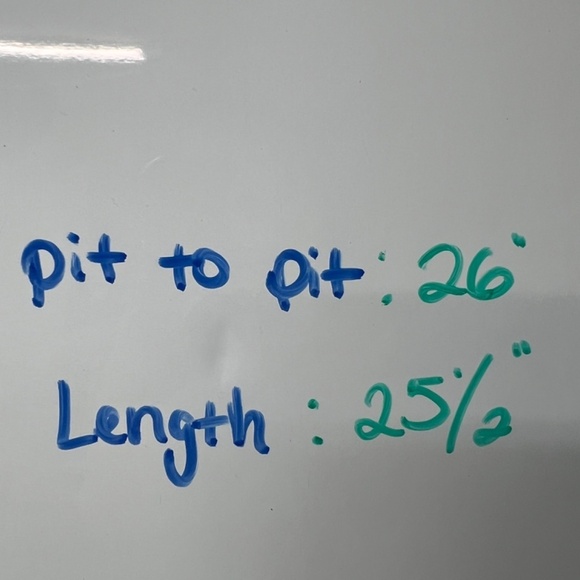 pit to pit: 26"
Length: 25 1/2"